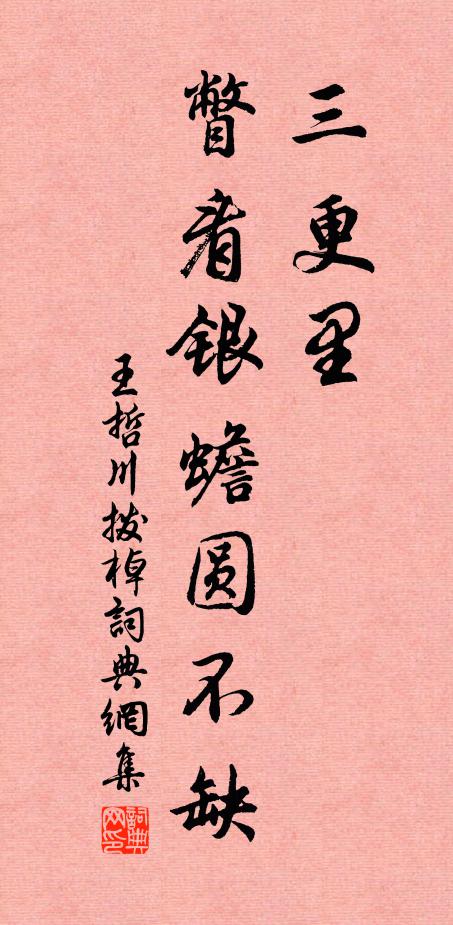 三更里
瞥者银蟾圆不缺
王哲川拨棹詞典網集
詞典网印